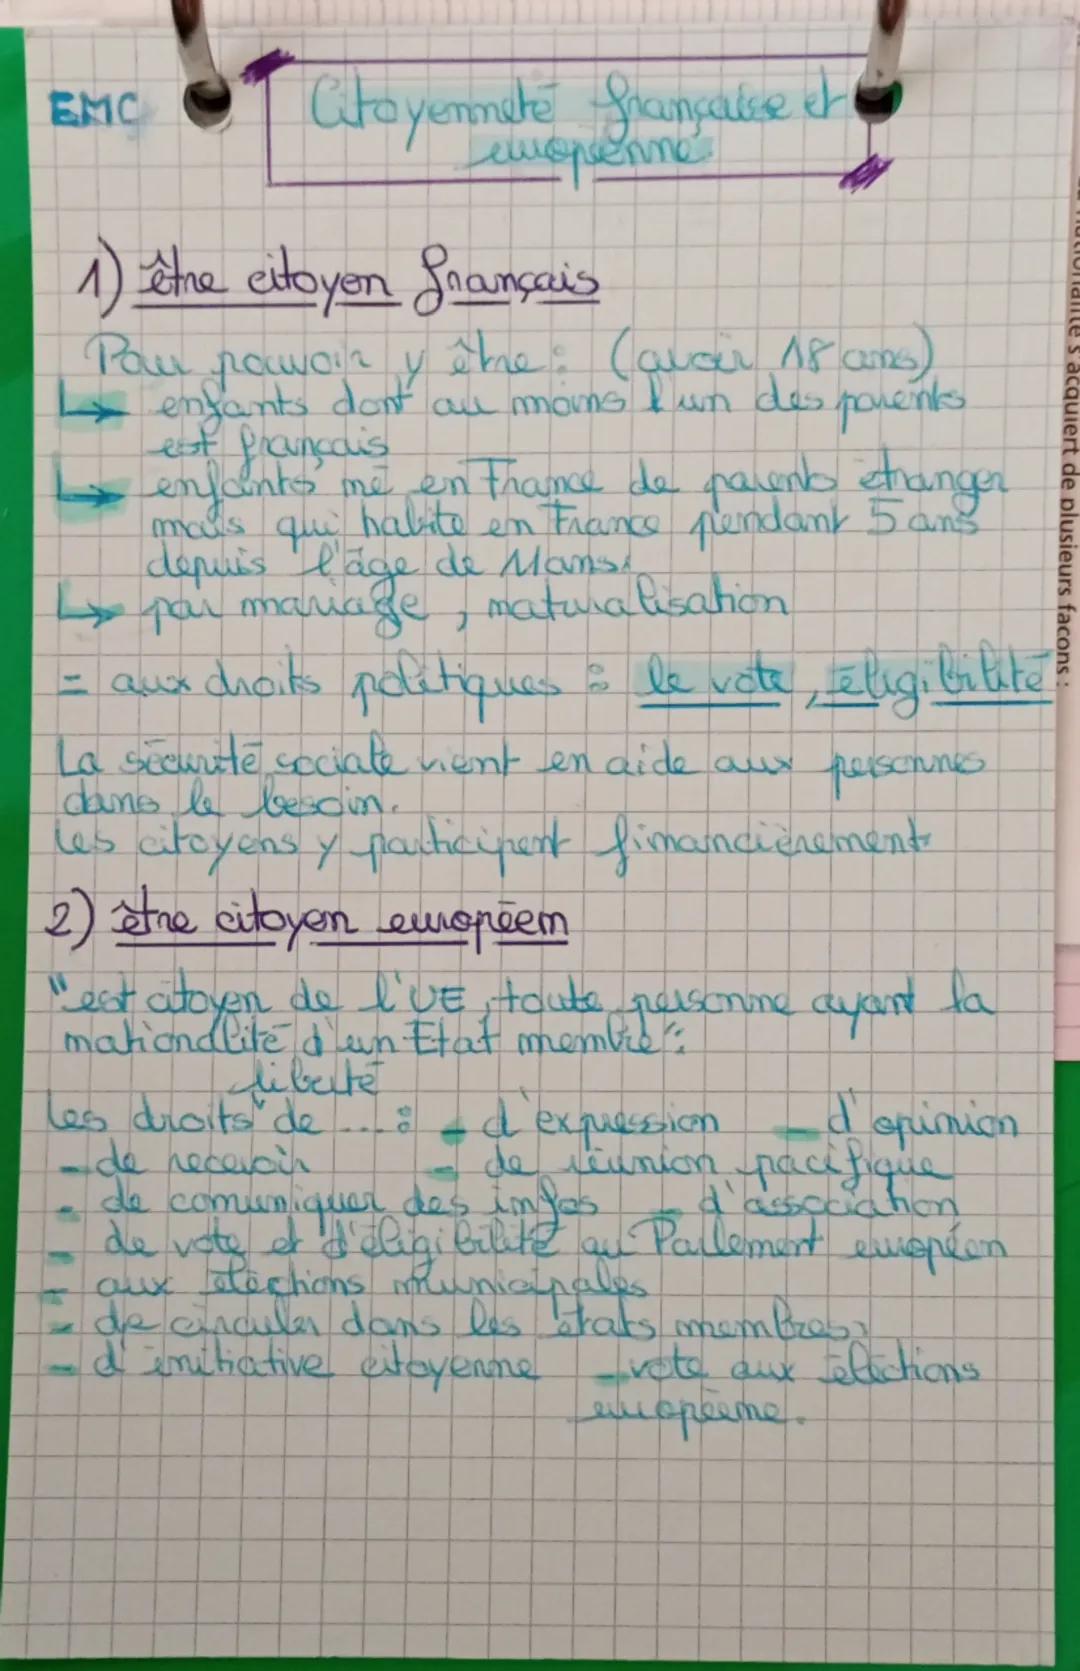 EMC
Citoyenneté française et
européenne
1) être citoyen français
Pour pouvoir y être : (avoir 18 ans)
↳ enfants dont au moins l'un des parents
est français
↳ enfants né en France de parents étranger
mais qui habite en France pendant 5 ans
depuis l'âge de 11ans.
↳ par mariage, naturalisation
= aux droits politiques : le vote, éligibilité
La sécurité sociale vient en aide aux personnes
dans le besoin.
les citoyens y participent financièrement
2) être citoyen européen
"est citoyen de l'UE, toute personne ayant la
nationalité d'un Etat membre".
liberté
Les droits de ... : - d'expression - d'opinion
- de recevoir - de réunion pacifique
- de comuniquer des infos - d'association
- de vote et d'éligibilité au Parlement européen
- aux élections municipales
- de circuler dans les états membres.
- d'initiative citoyenne - vote aux élections
européenne.
nationalité s'acquiert de plusieurs façons :